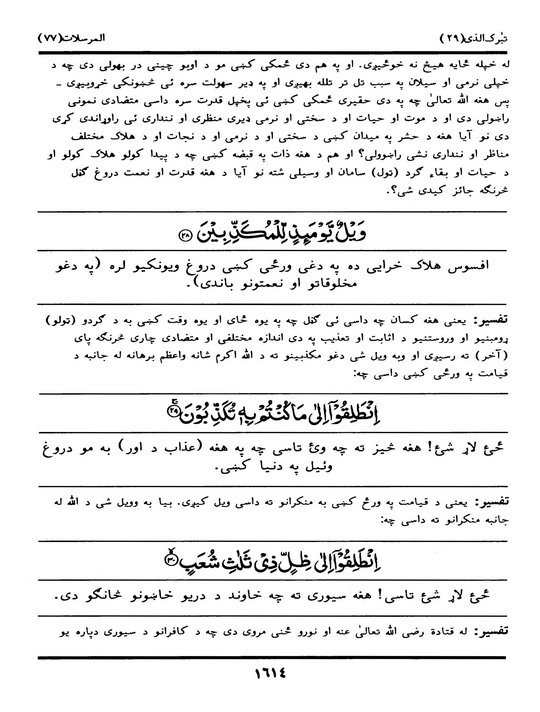 تبٰرك الذی(٢٩) المرسلات(٧٧)
له خپله ځایه هیڅ نه خوځیږی. او په هم دی ځمکی کښی مو د اوبو چینی در بهولی دی چه د
خپلی نرمی او سیلان په سبب تل تر تلله بهیږی او په ډیر سهولت سره ئی څښونکی خړوبیږی ـ
پس هغه الله تعالیٰ چه په دی حقیری ځمکی کښی ئی پخپل قدرت سره داسی متضادی نمونی
راښولی دی او د موت او حیات او د سختی او نرمی ډیری منظری او ننداری ئی راوړاندی کړی
دی نو آیا هغه د حشر په میدان کښی د سختی او د نرمی او د نجات او د هلاک مختلف
مناظر او ننداری نشی راښوولی؟ او هم د هغه ذات په قبضه کښی چه د پیدا کولو هلاک کولو او
د حیات او بقاء ګرد (ټول) سامان او وسیلی شته نو آیا د هغه قدرت او نعمت دروغ ګڼل
څرنګه جائز کیدی شی؟.
وَيْلٌ يَّوْمَئِذٍ لِّلْمُكَذِّبِيْنَ ﴿٢٨﴾
افسوس هلاک خرابی ده په دغی ورځی کښی دروغ ویونکیو لره (په دغو
مخلوقاتو او نعمتونو باندی).
تفسیر: یعنی هغه کسان چه داسی ئی ګڼل چه په یوه ځای او یوه وقت کښی به د ګردو (ټولو)
ړومبنیو او وروستنیو د اثابت او تعذیب په دی اندازه مختلفی او متضادی چاری څرنګه پای
(آخر) ته رسیږی او وبه ویل شی دغو مکذبینو ته د الله اکرم شانه واعظم برهانه له جانبه د
قیامت په ورځی کښی داسی چه:
اِنْطَلِقُوْٓا اِلٰى مَا كُنْتُمْ بِهٖ تُكَذِّبُوْنَ ﴿٢٩﴾
ځئ لاړ شئ! هغه څیز ته چه وئ تاسی چه په هغه (عذاب د اور) به مو دروغ
وئیل په دنیا کښی.
تفسیر: یعنی د قیامت په ورځ کښی به منکرانو ته داسی ویل کیږی. بیا به وویل شی د الله له
جانبه منکرانو ته داسی چه:
اِنْطَلِقُوْٓا اِلٰى ظِلٍّ ذِيْ ثَلٰثِ شُعَبٍ ﴿٣٠﴾
ځئ لاړ شئ تاسی! هغه سیوری ته چه خاوند د دریو ښاخونو څانګو دی.
تفسیر: له قتادة رضی الله تعالیٰ عنه او نورو څنی مروی دی چه د کافرانو د سیوری دپاره یو
١٦١٤